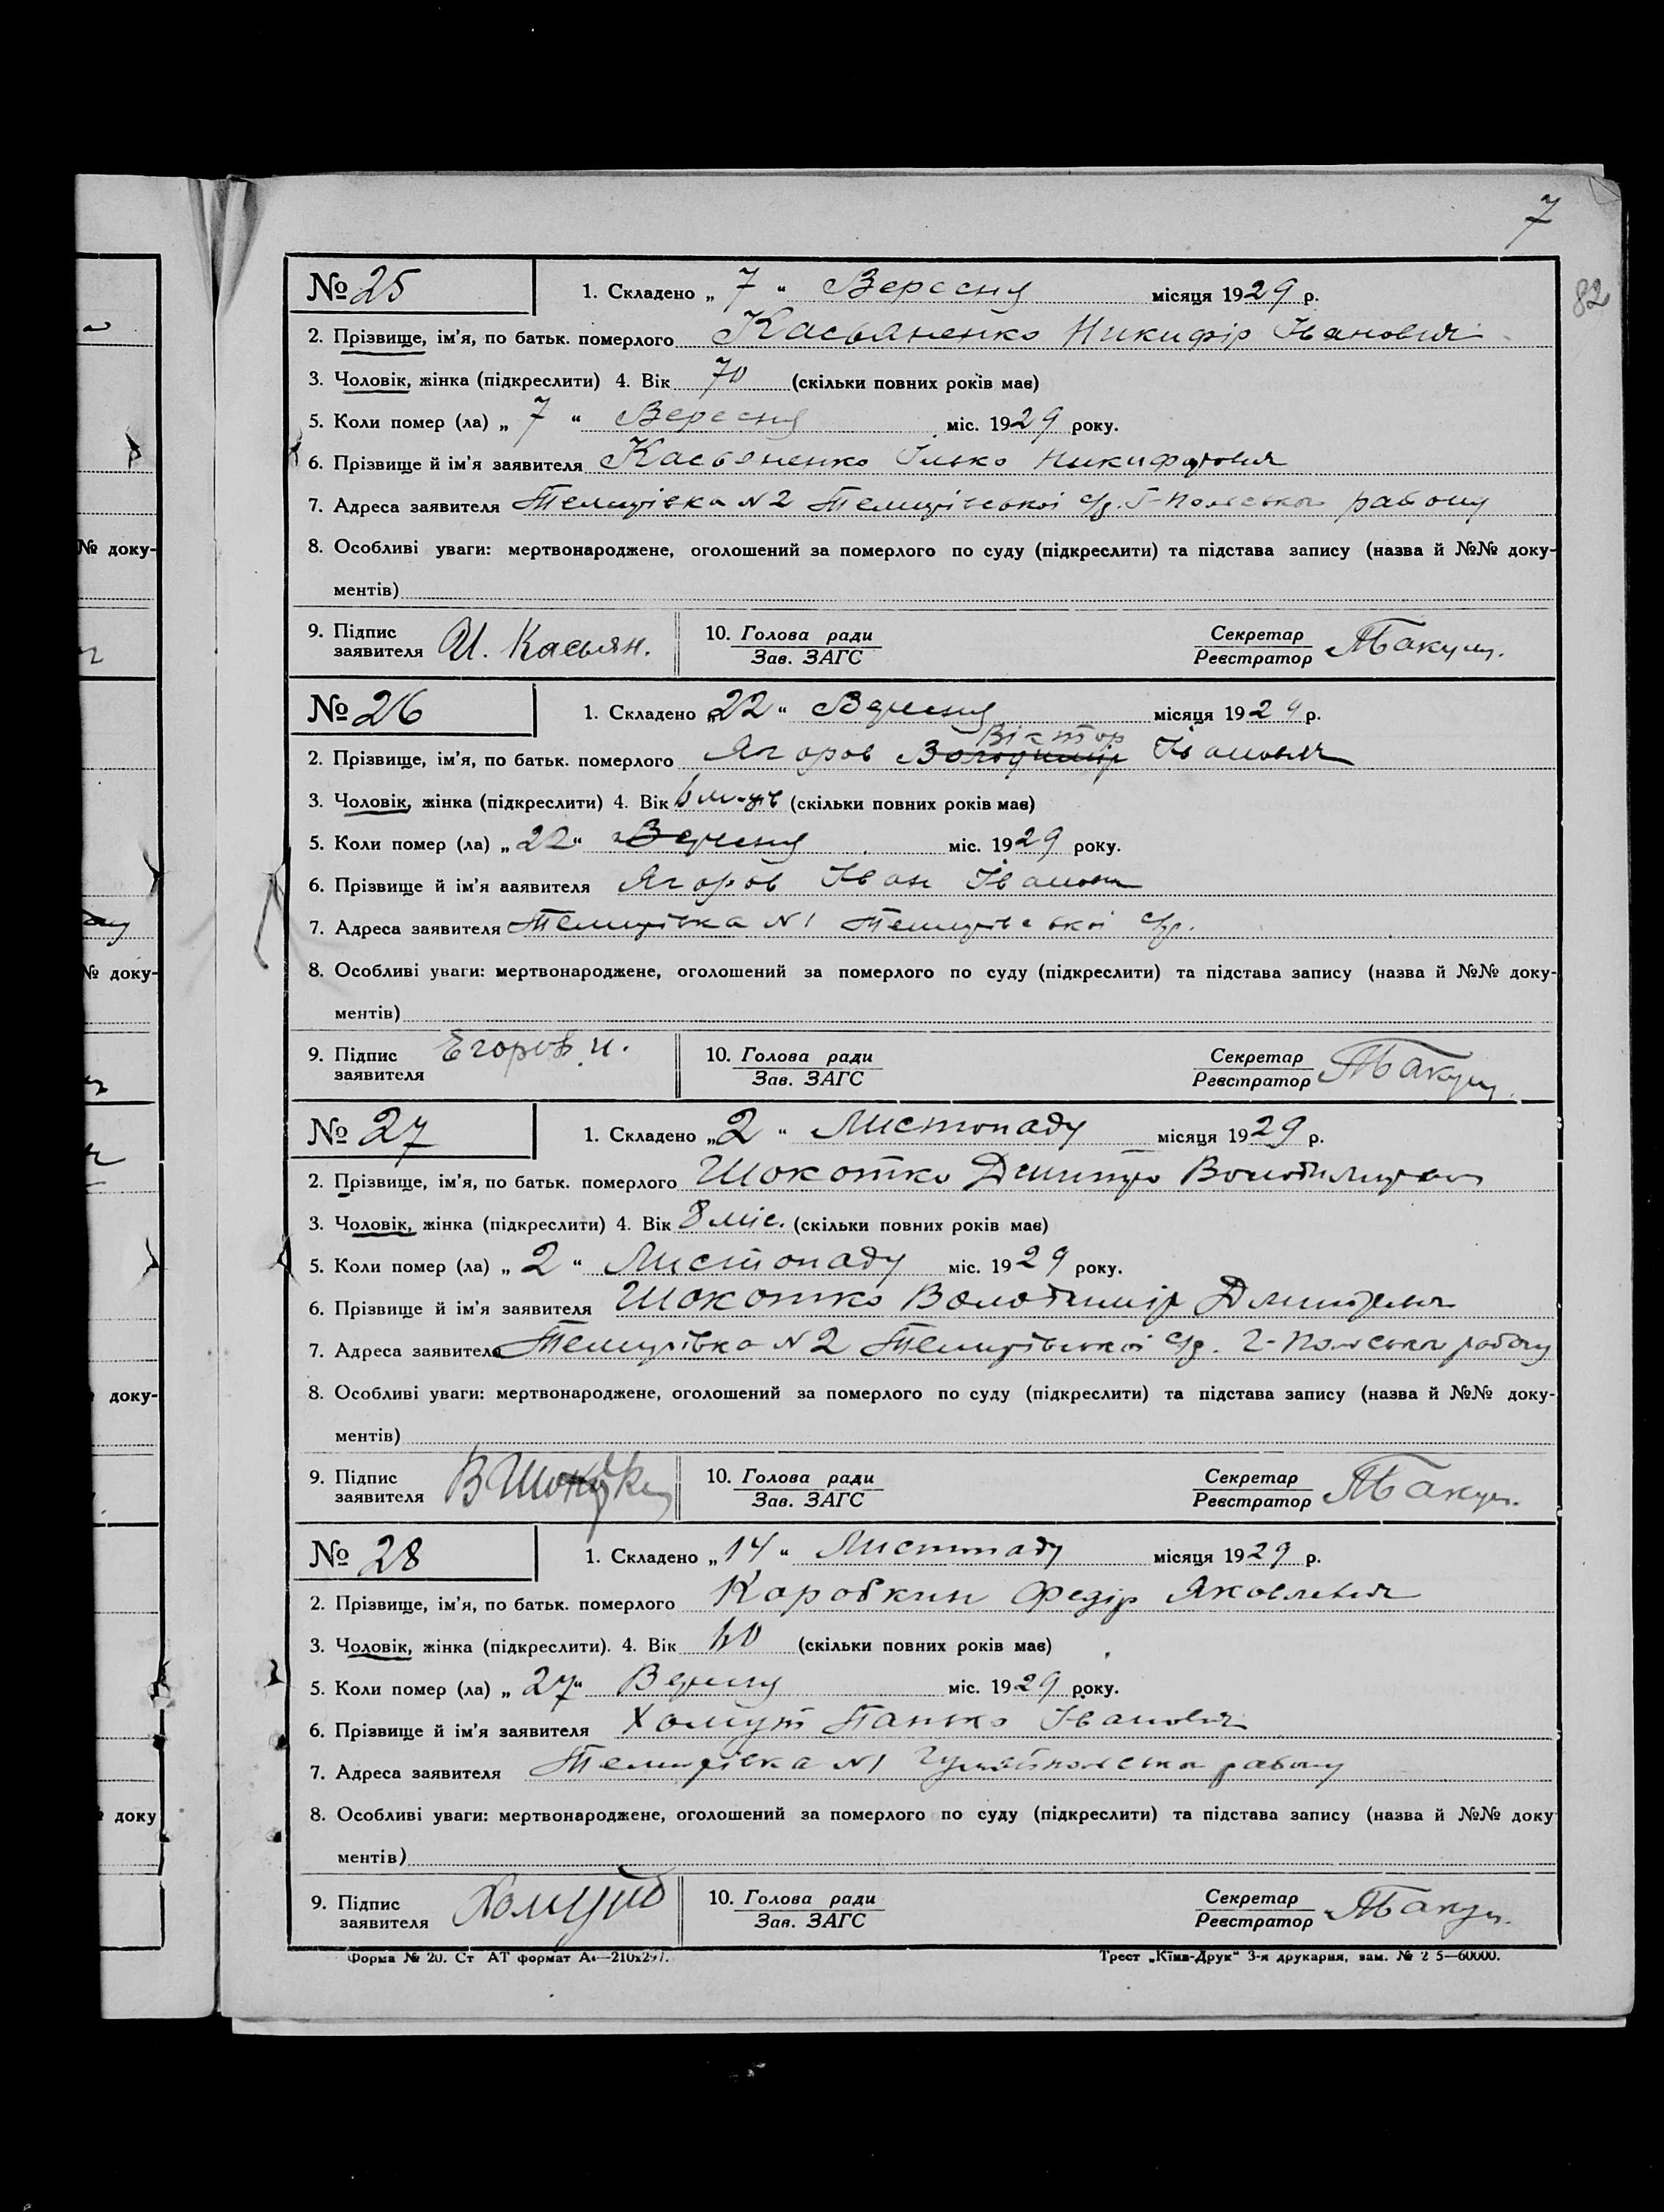 7
82
№ 25 1. Складено „ 7 “ Вересня місяця 1929 р.
2. Прізвище, ім'я, по батьк. померлого Касьяненко Никифір Іванович
3. Чоловік, жінка (підкреслити) 4. Вік 70 (скільки повних років має)
5. Коли помер (ла) „ 7 “ Вересня міс. 1929 року.
6. Прізвище й ім'я заявителя Касьяненко Ілько Никифорович
7. Адреса заявителя Темирівка N2 Темирівської с/р. Г-Польськ району
8. Особливі уваги: мертвонароджене, оголошений за померлого по суду (підкреслити) та підстава запису (назва й №№ доку-
ментів)
9. Підпис заявителя И. Касьян. 10. Голова ради Зав. ЗАГС Секретар Реєстратор
№ 26 1. Складено „ 22 “ Вересня місяця 1929 р.
Віктор
2. Прізвище, ім'я, по батьк. померлого Ягоров Володимір Іванович
3. Чоловік, жінка (підкреслити) 4. Вік 6 м-ців (скільки повних років має)
5. Коли помер (ла) „ 22 “ Вересня міс. 1929 року.
6. Прізвище й ім'я заявителя Ягоров Іван Іванович
7. Адреса заявителя Темирівка N1 Темирівської с/р.
8. Особливі уваги: мертвонароджене, оголошений за померлого по суду (підкреслити) та підстава запису (назва й №№ доку-
ментів)
9. Підпис заявителя Егоров И. 10. Голова ради Зав. ЗАГС Секретар Реєстратор
№ 27 1. Складено „ 2 “ Листопаду місяця 1929 р.
2. Прізвище, ім'я, по батьк. померлого Шокотко Дмитро Володимирович
3. Чоловік, жінка (підкреслити) 4. Вік 8 міс. (скільки повних років має)
5. Коли помер (ла) „ 2 “ Листопаду міс. 1929 року.
6. Прізвище й ім'я заявителя Шокотко Володимір Дмитрович
7. Адреса заявителя Темирівка N2 Темирівської с/р. Г-Польськ району
8. Особливі уваги: мертвонароджене, оголошений за померлого по суду (підкреслити) та підстава запису (назва й №№ доку-
ментів)
9. Підпис заявителя 10. Голова ради Зав. ЗАГС Секретар Реєстратор
№ 28 1. Складено „ 14 “ Листопаду місяця 1929 р.
2. Прізвище, ім'я, по батьк. померлого Коробкин Федір Яковлевич
3. Чоловік, жінка (підкреслити). 4. Вік 40 (скільки повних років має)
5. Коли помер (ла) „ 27 “ Вересня міс. 1929 року.
6. Прізвище й ім'я заявителя Хомут Панько Іванович
7. Адреса заявителя Темирівка N1 Гуляйпольськ району
8. Особливі уваги: мертвонароджене, оголошений за померлого по суду (підкреслити) та підстава запису (назва й №№ доку
ментів)
9. Підпис заявителя Хомут 10. Голова ради Зав. ЗАГС Секретар Реєстратор
Форма № 20. Ст АТ формат А4—210х297. Трест „Київ-Друк“ 3-я друкарня, зам. № 2 5—60000.